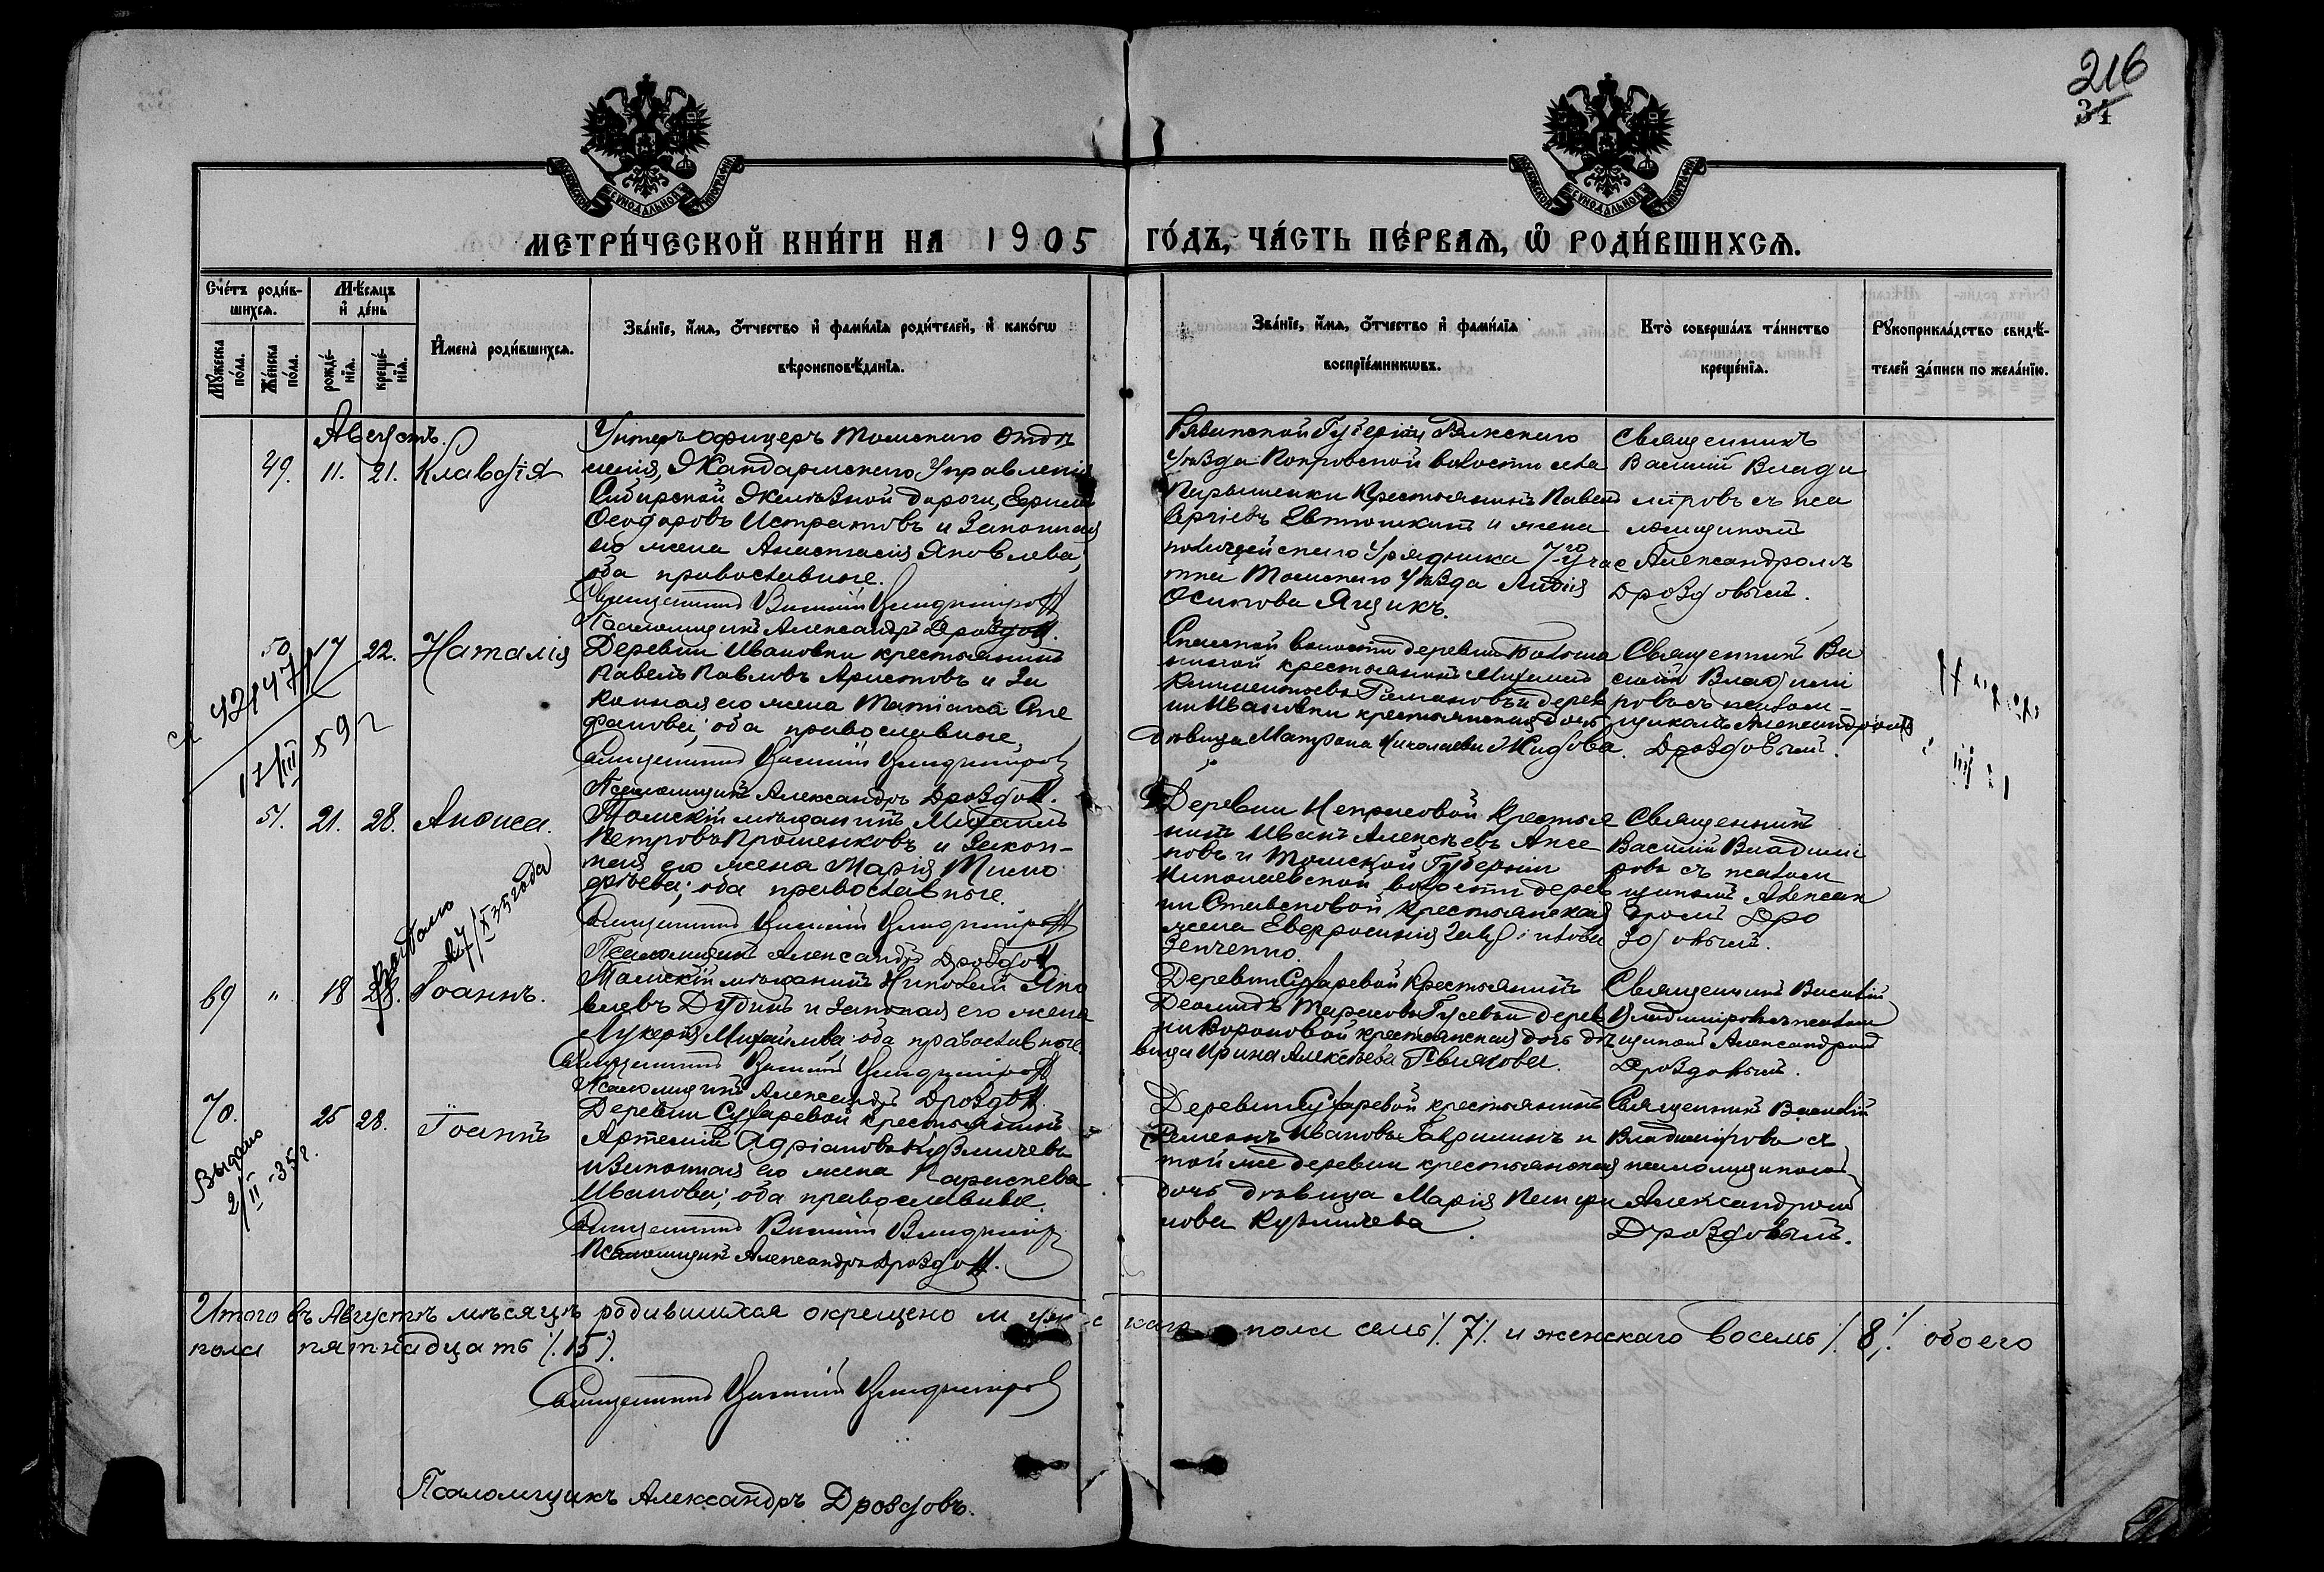 216
34
МОСКОВСКОЙ СѴНОДАЛЬНОЙ ТИПОГРАФІИ
МОСКОВСКОЙ СѴНОДАЛЬНОЙ ТИПОГРАФІИ
МЕТРИ́ЧЕСКОЙ КНИ́ГИ НА 1905 ГО́ДЪ, ЧА́СТЬ ПЕ́РВАѦ, Ѽ РОДИ́ВШИХСѦ.
Сче́тъ роди́в-
шихсѧ.
Мѣ́сѧцъ
и де́нь
Мꙋ́жеска
по́ла.
Же́нска
по́ла.
рожде́-
нїѧ.
креще́-
нїѧ.
Имена̀ роди́вшихсѧ.
Зва́нїе, и́мѧ, о́тчество и фами́лїѧ роди́телей, и како́гѡ
вѣроисповѣ́данїѧ.
Зва́нїе, и́мѧ, о́тчество и фами́лїѧ
воспрїе́мникѡвъ.
Кто̀ соверша́лъ та́инство
креще́нїѧ.
Рꙋкоприкла́дство свидѣ́-
телей за́писи по жела́нїю.
Августъ.
49. 11. 21. Клавдія
Унтеръ офицеръ Томскаго Отдѣ
ленія, Жандармскаго Управленія
Сибирской Желѣзной дороги, Ефимъ
Ѳеодоровъ Истратовъ и Законная
его жена Анастасія Яковлева;
оба православные.
Священникъ Василій Владиміров
Псаломщикъ Александръ Дроздов.
Рязанской Губерніи Ряжскаго
Уѣзда Покровской волости села
Крестьянинъ Павелъ
Сергіевъ Евтюшкинъ и жена
полицейскаго Урядника 7го учас
тка Томскаго Уѣзда Лидія
Осипова Ящикъ.
Священникъ
Василій Влади
міровъ съ пса
ломщикомъ
Александромъ
Дроздовымъ.
50 17 22. Наталія
Деревни Ивановки крестьянинъ
Павелъ Павловъ Аристовъ и За
конная его жена Татіана Сте
фанова; оба православные,
Священникъ Василій Владиміров
Псаломщикъ Александръ Дроздов.
Спасской волости деревни
крестьянинъ Михаилъ
Климентьевъ и дерев
ни Ивановки крестьянская дочь
дѣвица Матрона Николаева Жидова.
Священникъ Ва
силій Владимі
ровъ съ псалом-
щикомъ Александромъ
Дроздовымъ.
42147
17/III 59 г
51. 21. 28. Анфиса.
Томскій мѣщанинъ Михаилъ
Петровъ Прошенковъ и Закон-
ная его жена Марія Тимо
фѣева; оба православные.
Священникъ Василій Владиміров
Псаломщикъ Александръ Дроздов
Деревни Некрасовой Крестья
нинъ Иванъ Алексѣевъ Аксе
новъ и Томской Губерніи
Николаевской волости дерев
ни Крестьянская
жена Евфросинія
Зенченко.
Священникъ
Василій Владимі
ровъ съ псалом
щикомъ Алексан
дромъ Дро
здовымъ.
Выдано
27/XI 35 года
69 " 18 28. Іоаннъ.
Томскій мѣщанинъ Николай Яко
влевъ Дудинъ и законная его жена
Лукерія Михайлова: оба православные.
Священникъ Василій Владиміров
Псаломщикъ Александръ Дроздов
Деревни Сухаревой Крестьянинъ
Деомидъ Тарасовъ Гусевъ и дерев
ни Вороновой крестьянская дочь дѣ
вица Ирина Алексѣева
Священникъ Василій
Владиміровъ съ псалом
щикомъ Александромъ
Дроздовымъ.
70. 25 28. Іоаннъ
Деревни Сухаревой крестьянинъ
Артемій Адріановъ Кузмичевъ
и Законная его жена Параскева
Иванова; оба православные.
Священникъ Василій Владиміров
Псаломщикъ Александръ Дроздов.
Деревни Сухаревой крестьянинъ
Семеонъ Ивановъ Гаврилинъ и
той же деревни крестьянская
дочь дѣвица Марія
нова Кузмичева.
Священникъ Василій
Владиміровъ съ
псаломщикомъ
Александромъ
Дроздовымъ.
Выдано
2/II-35 г.
Итого въ Августѣ мѣсяцѣ родившихся окрещено мужскаго пола семь ./. 7 ./. и женскаго восемь ./. 8 ./. обоего
пола пятнадцать ./. 15 ./.
Священникъ Василій Владиміров
Псаломщикъ Александръ Дроздовъ.